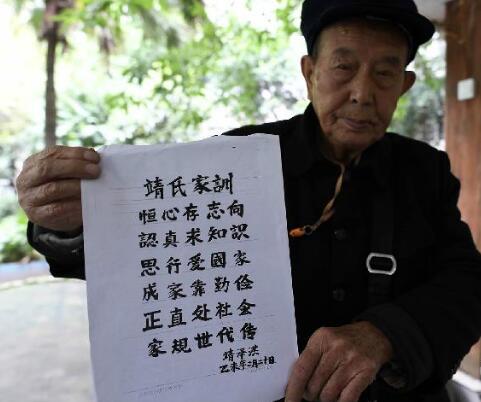 靖氏家訓
恒心存志向
認真求知識
思行爱國家
成家靠勤俭
正直处社会
家規世代传
靖泽洪
乙未年二月二十日